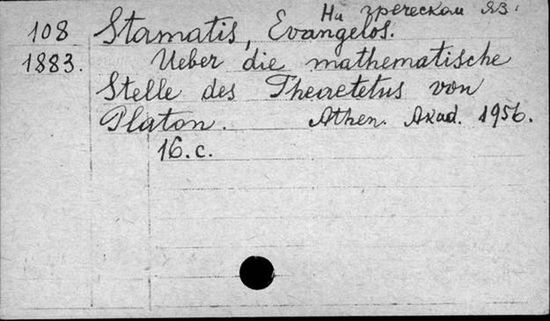 На греческом яз.
108 Stamatis, Evangelos.
1883. Ueber die mathematische
Stelle des Theaetetus von
Platon. Athen. Akad. 1956.
16.c.